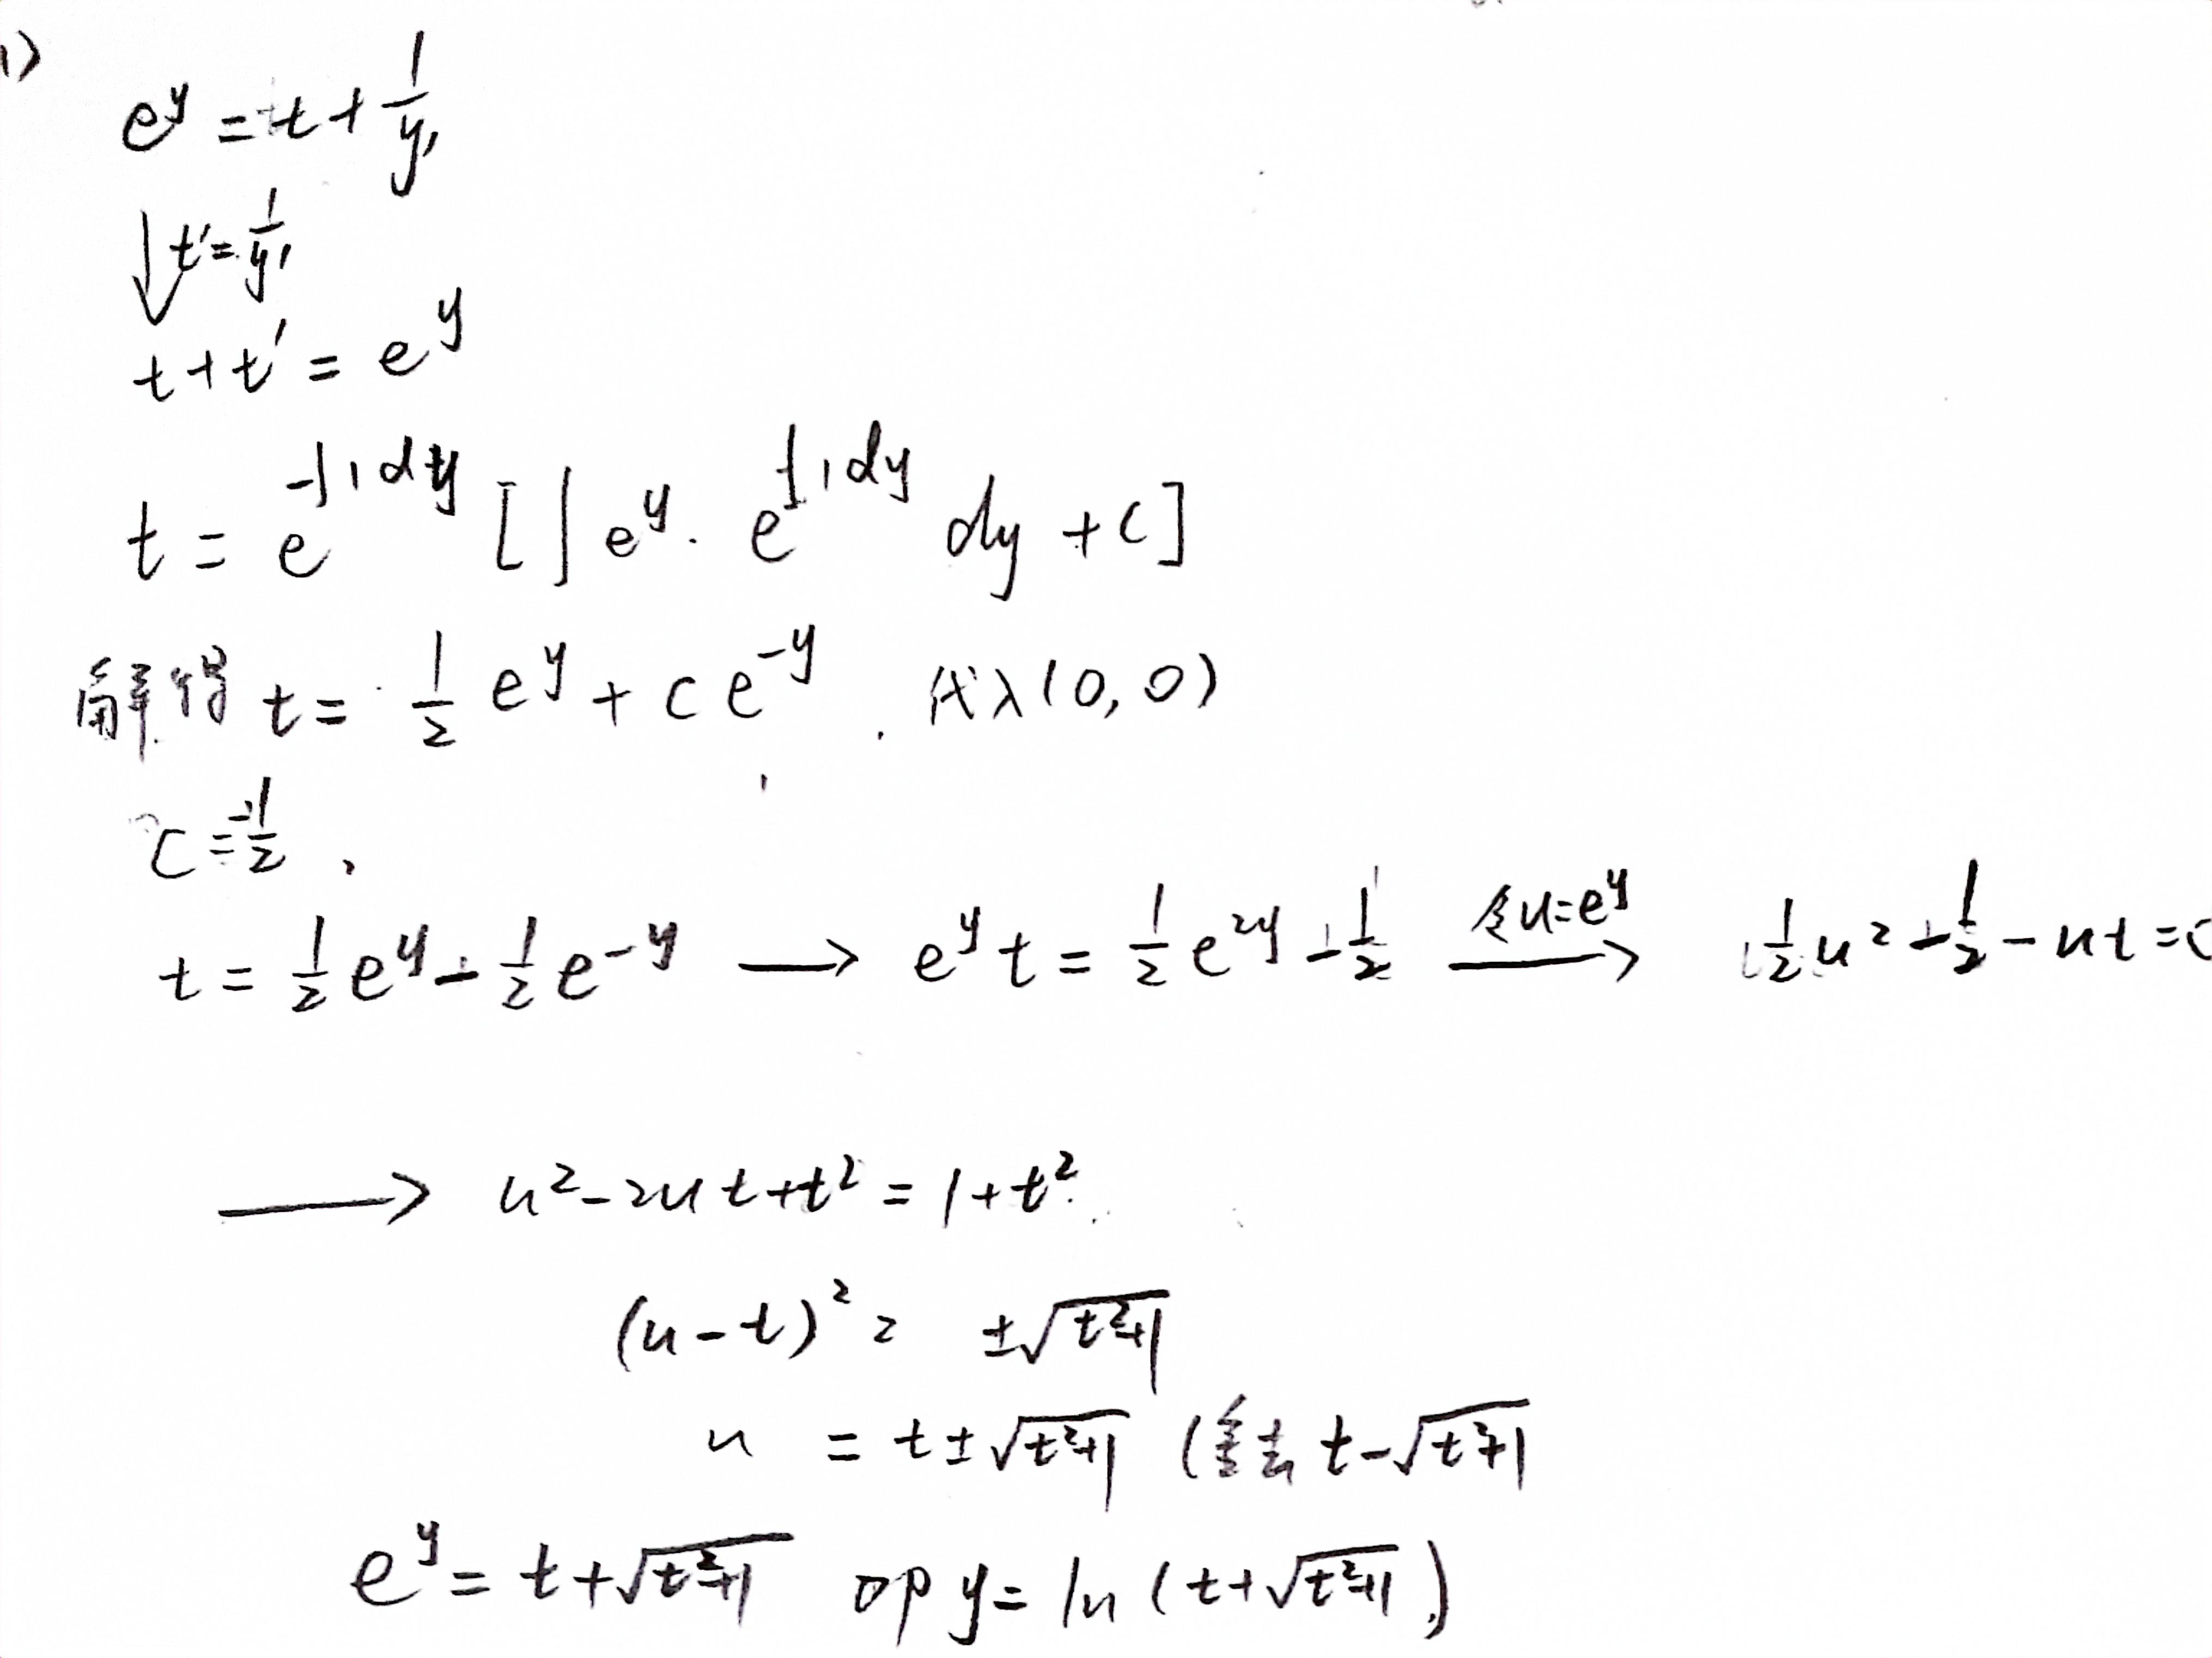 1)
e^y = t + 1/y'
↓ t' = 1/y'
t + t' = e^y
t = e^{-∫1dy} [∫e^y · e^{∫1dy} dy + C]
解得 t = 1/2 e^y + c e^{-y} . 代入(0,0)
C = -1/2 ,
t = 1/2 e^y - 1/2 e^{-y} ⟶ e^y t = 1/2 e^{2y} - 1/2 ⟶ 令u=e^y 1/2 u² - 1/2 - ut = 0
⟶ u² - 2ut + t² = 1 + t²
(u - t)² = ±√(t²+1)
u = t ± √(t²+1) (舍去 t - √(t²+1)
e^y = t + √(t²+1) 即 y = ln(t + √(t²+1))